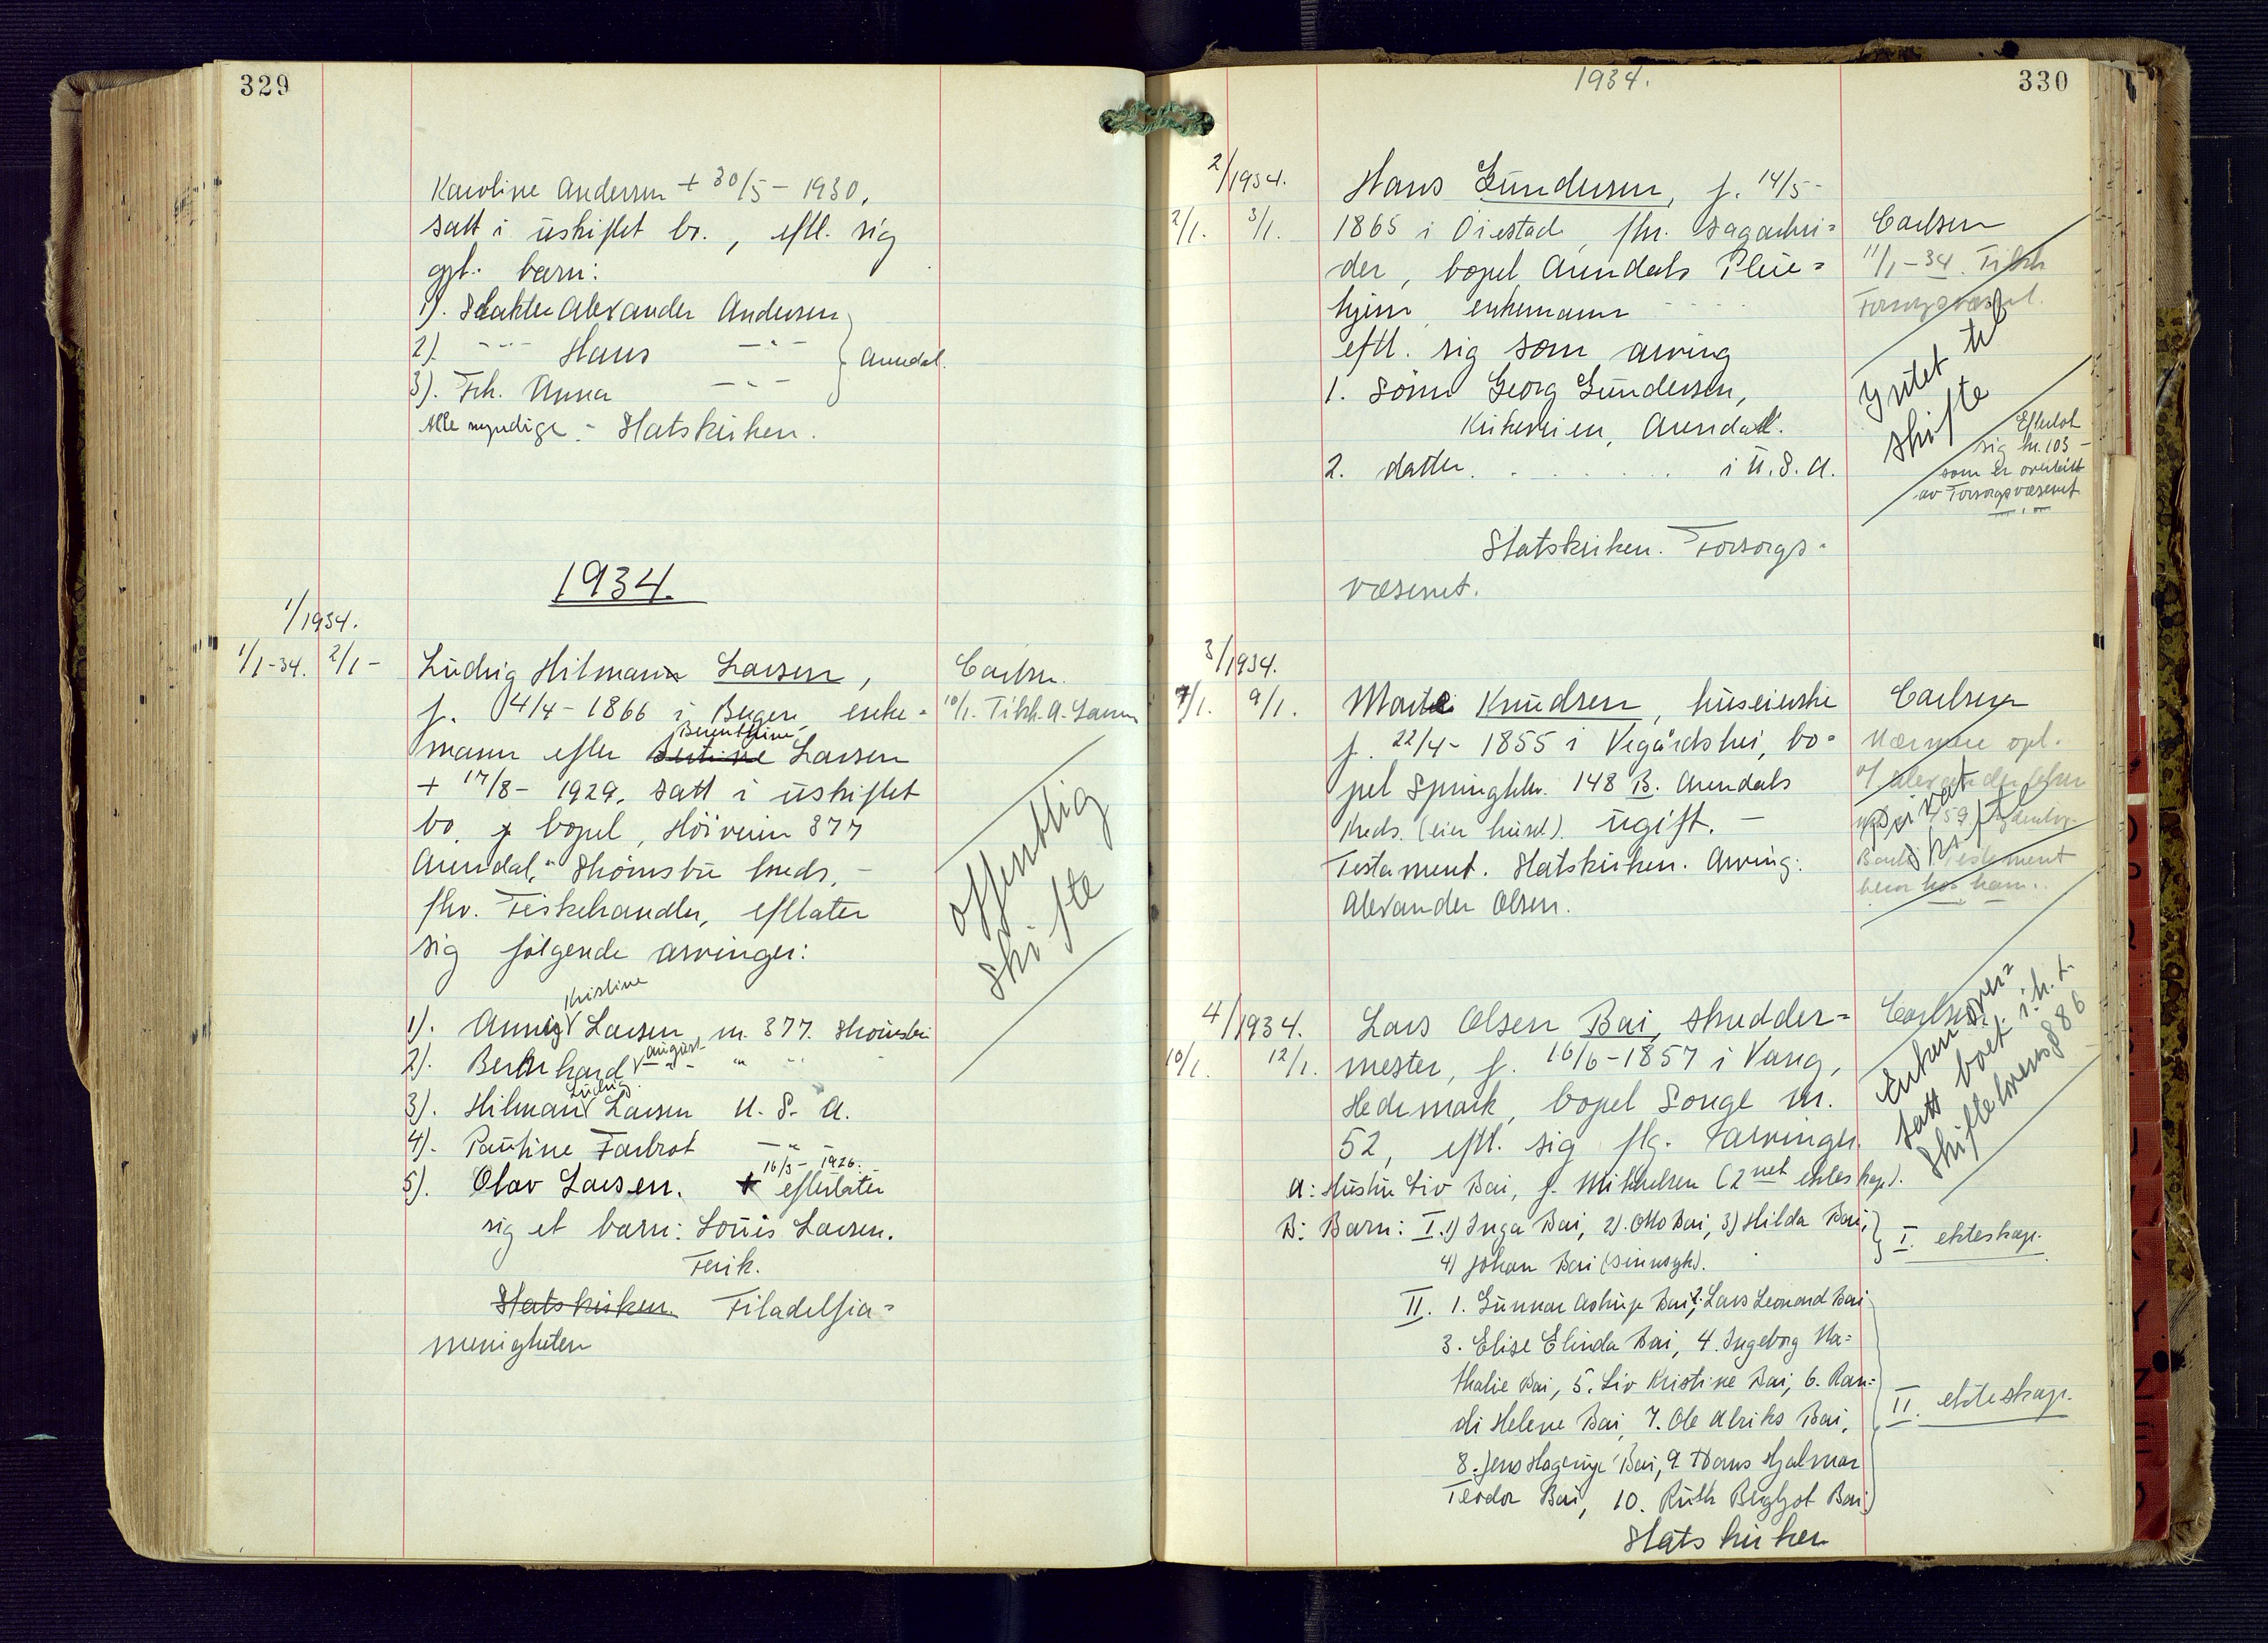 329
Karoline Andersen + 30/5 - 1930,
satt i uskiftet bo., eftl. sig
gjl. barn:
1). Slakter Alexander Andersen
2). -"- Hans -"-
3). Frk. Anna -"-
} Arendal.
Alle myndige. - Statskirken.
1934.
1/1934.
1/1-34. 2/1-
Ludvig Hilmann Larsen,
f. 4/4 - 1866 i Bergen, enke=
Berenthine
mann efter Larsen
+ 17/8 - 1929, satt i uskiftet
bo, bopel, Höiveien 377
Arendal, Strömsbu kreds. -
fhv. Fiskehandler, efterlater
sig følgende arvinger:
Kristine
1). Anny Larsen nr. 377.
August
2). Bernhard -"- " "
Ludvig
3). Hilman Larsen U. S. A.
4). Pauline Farbrot -"-
16/3 - 1926.
5). Olav Larsen. + efterlater
sig et barn: Louis Larsen.
Statskirken. Filadelfia=
menigheten
Carlsen.
10/1. Tilk. A. Larsen
offentlig
skifte
1934.
330
2/1934.
2/1. 3/1.
Hans Gundersen, f. 14/5 -
1865 i Öiestad, fhv. sagarbei=
der, bopel Arendals Pleie=
hjem, enkemann
eftl. sig som arving
1. Sönn Georg Gundersen,
Kirkeveien, Arendal.
2. datter . . . . . i U. S. A.
Statskirken. Forsorgs=
væsenet.
Carlsen
11/1-34. Tilk
Forsorgsvæsenet.
Intet til
skifte
Efterlot
sig kr. 103 -
som er
av Forsorgsvæsenet
3/1934.
7/1. 9/1.
Marte Knudsen, huseierske
f. 22/4 - 1855 i Vegårdshei, bo=
pel Springkln. 148 B. Arendals
Kreds. (eier huset). ugift. -
Testament. Statskirken. Arving:
Alexander Olsen.
Carlsen
Nærmere opl.
af Alexander Olsen
Testament
beror hos ham.
privat
skifte
4/1934.
10/1. 12/1.
Lars Olsen Bai, skredder=
mester, f. 16/6 - 1857 i Vang,
Hedemark, bopel Songe nr.
52, eftl. sig flg. arvinger.
A: Hustru Liv Bai, f. Mikkelsen (2net ekteskap).
B: Barn: I. 1) Inga Bai, 2). Otto Bai, 3) Hilda Bai,
4) Johan Bai (sinnsyk).
} I. ekteskap.
II. 1. Gunnar Astrup Bai, 2. Lars Leonard Bai
3. Elise Elinda Bai, 4. Ingeborg Na=
thalie Bai, 5. Liv Kristine Bai, 6. Ran=
di Helene Bai, 7. Ole Alriks Bai,
8. Jens Bai, 9. Hans Hjalmar
Teodor Bai, 10. Ruth Bergljot Bai
} II. ekteskap.
Statskirken
Carlsen.
Enken over=
tatt boet i. h. t.
Skiftelovens § 86